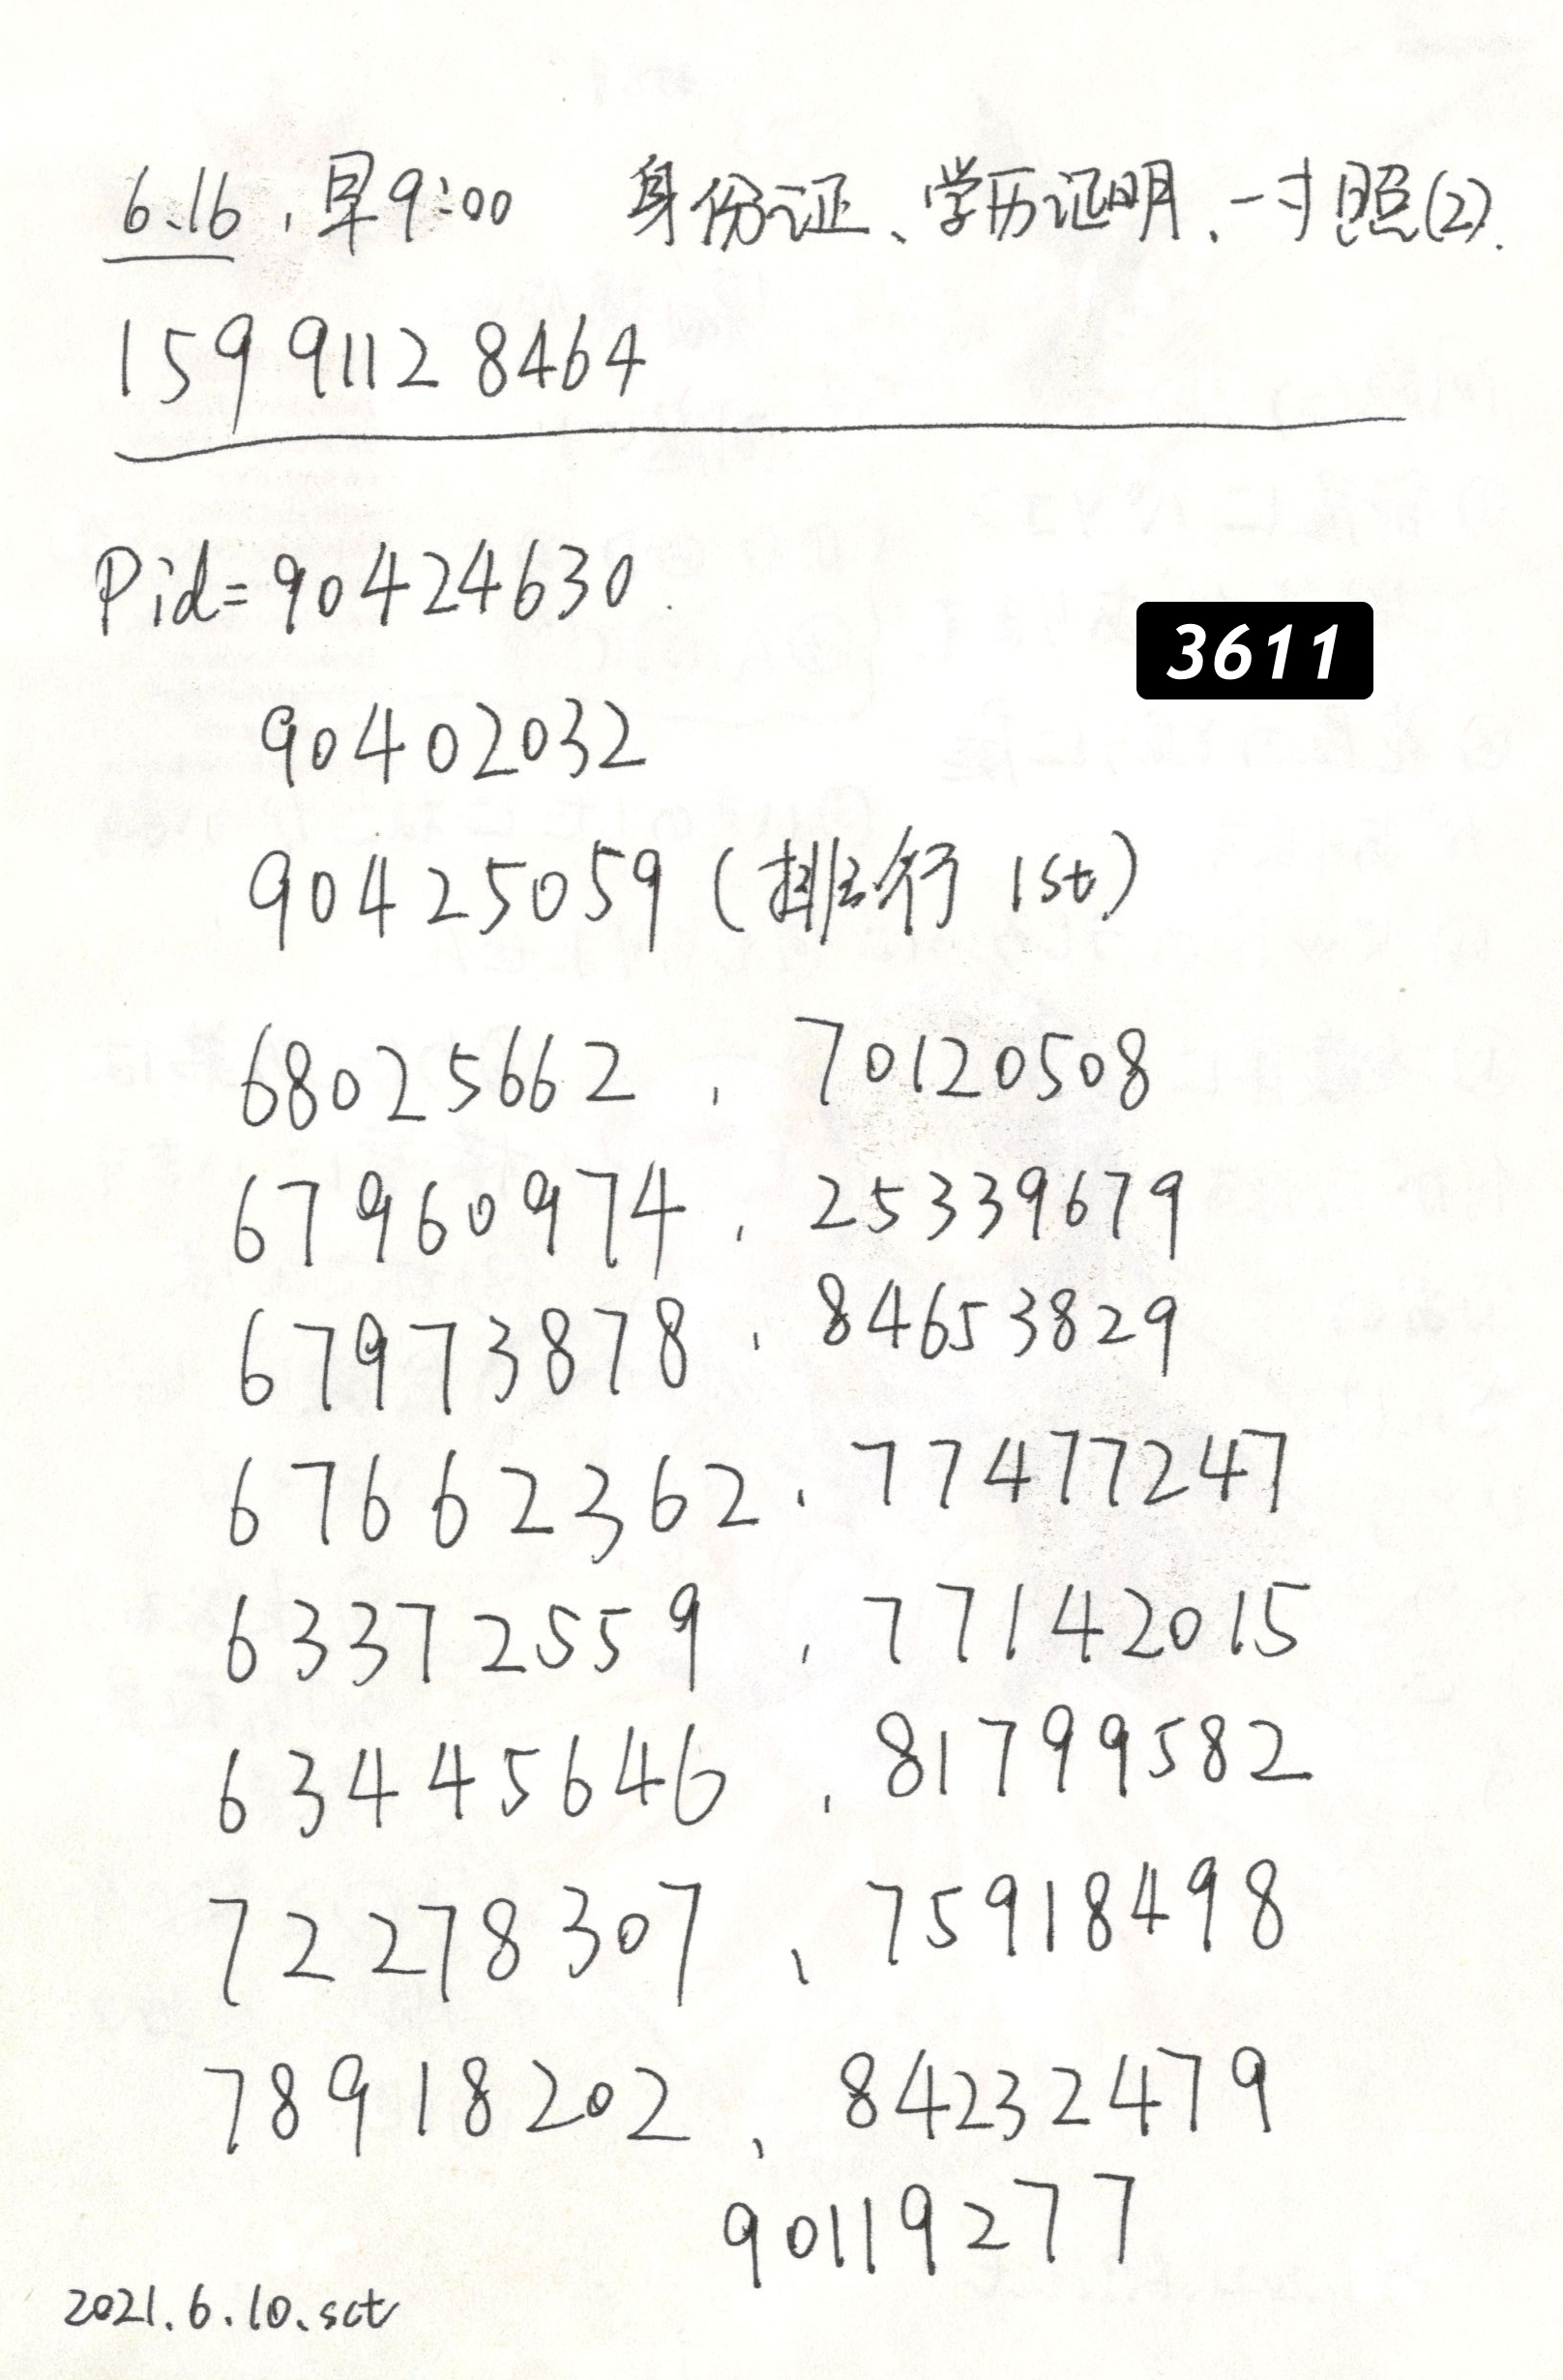 6.16，早9:00 身份证、学历证明、一寸照(2).
159 9112 8464
Pid=90424630.
3611
90402032
90425059 (排行 1st)
68025662 , 70120508
67960974 , 25339679
67973878 , 84653829
67662362 , 77477247
63372559 , 77142015
63445646 , 81799582
72278307 、 75918498
78918202 、 84232479
90119277
2021.6.10.sct